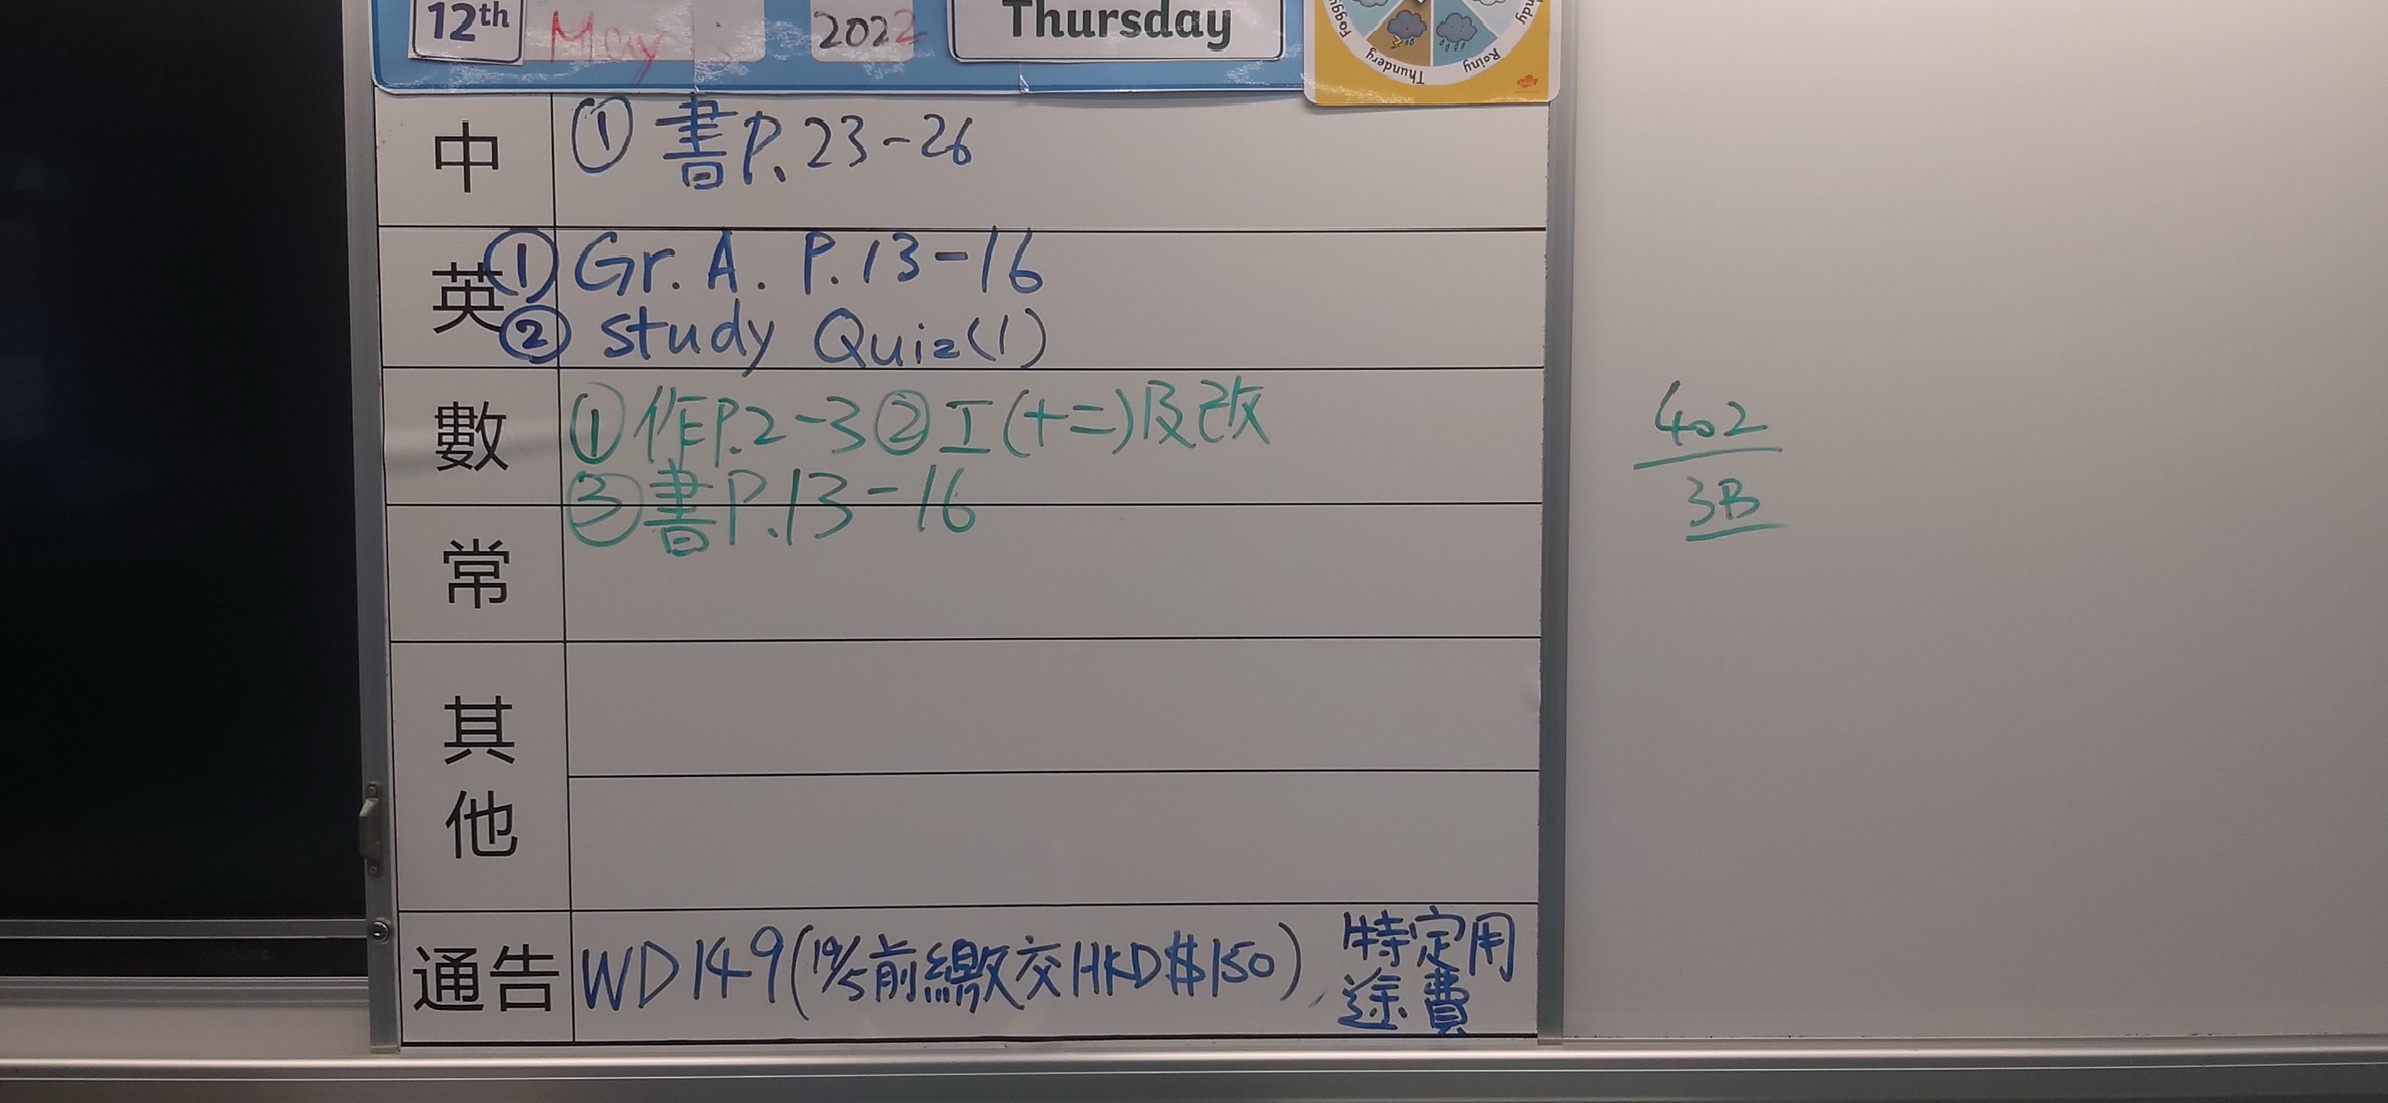 12th May 2022 Thursday
Foggy Thundery Rainy
中 ① 書P.23-26
英 ① Gr. A. P.13-16
② study Quiz(1)
數 ① 作P.2-3 ② 工(十二)及改
③ 書P.13-16
常
其他
通告 WD149(19/5前繳交HKD$150), 特定用
途費
402
3B